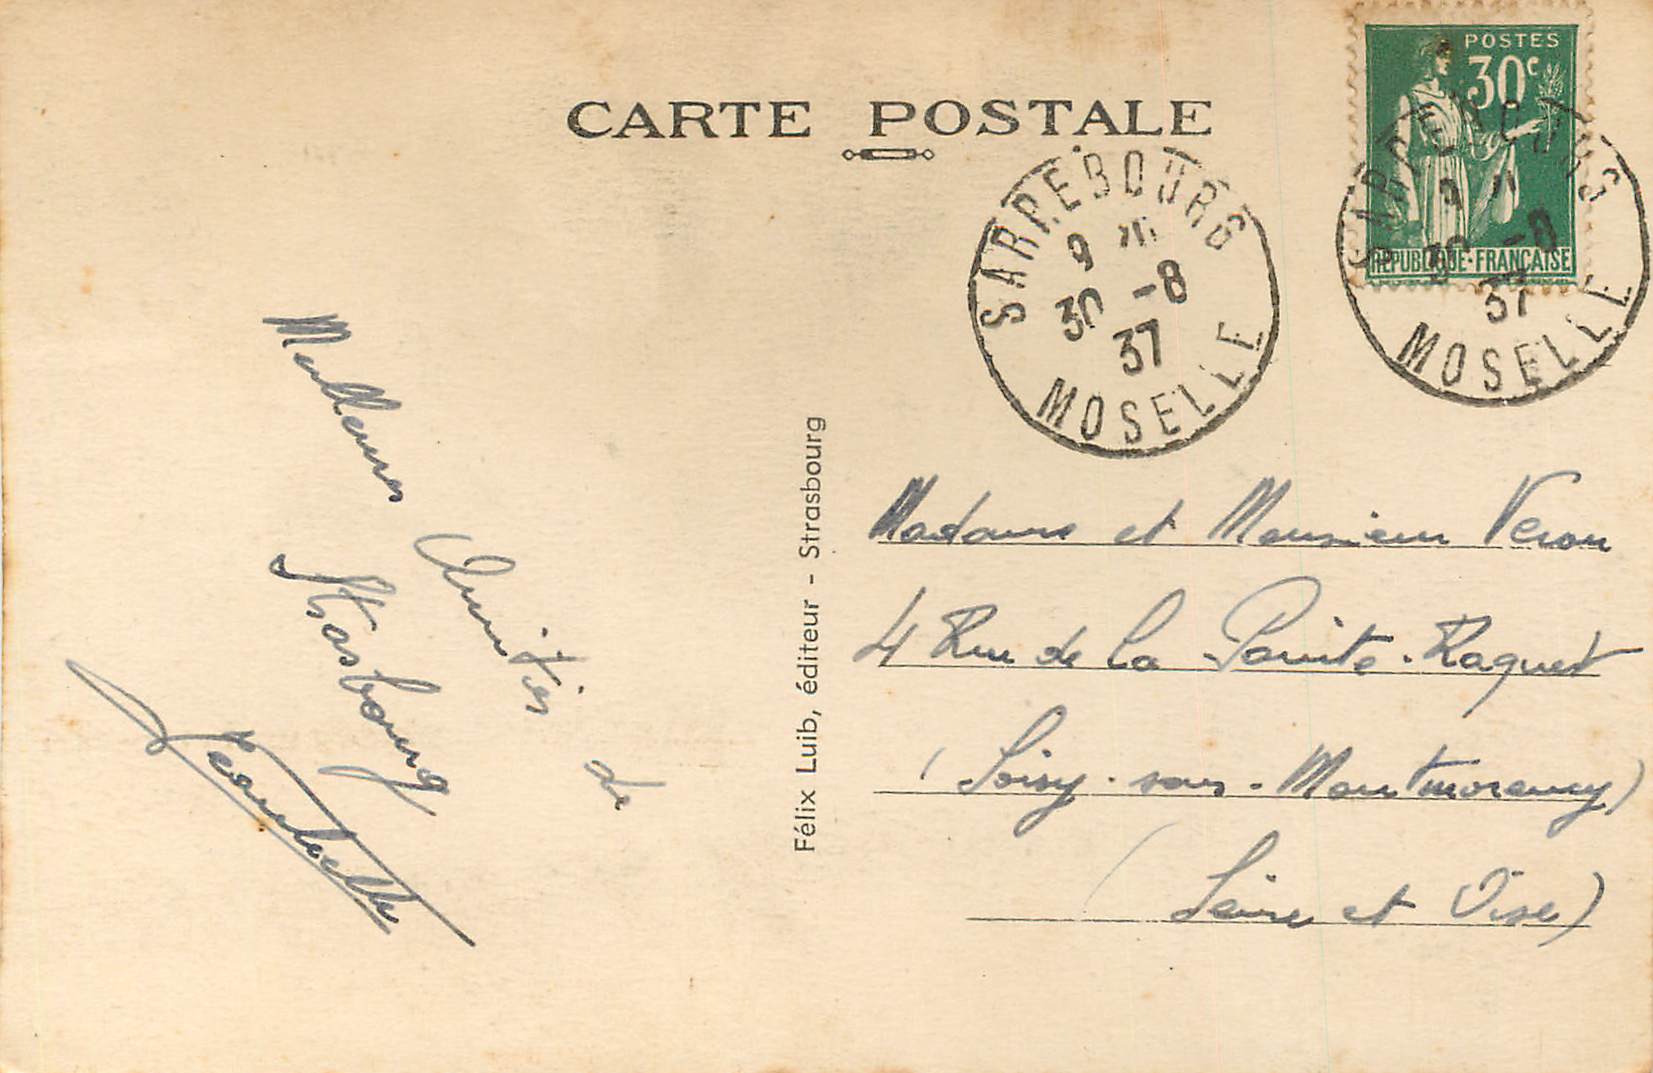 CARTE POSTALE
POSTES
30c
REPUBLIQUE·FRANÇAISE
SARREBOURG
9
30 -8
37
MOSELLE
SARREBOURG
30 -8
37
MOSELLE
Félix Luib, éditeur - Strasbourg
Meilleures Amitiés de
Strasbourg
Madame et Monsieur Veron
4 Rue de la Pointe-Raquet
(Soisy-sous-Montmorency)
(Seine et Oise)